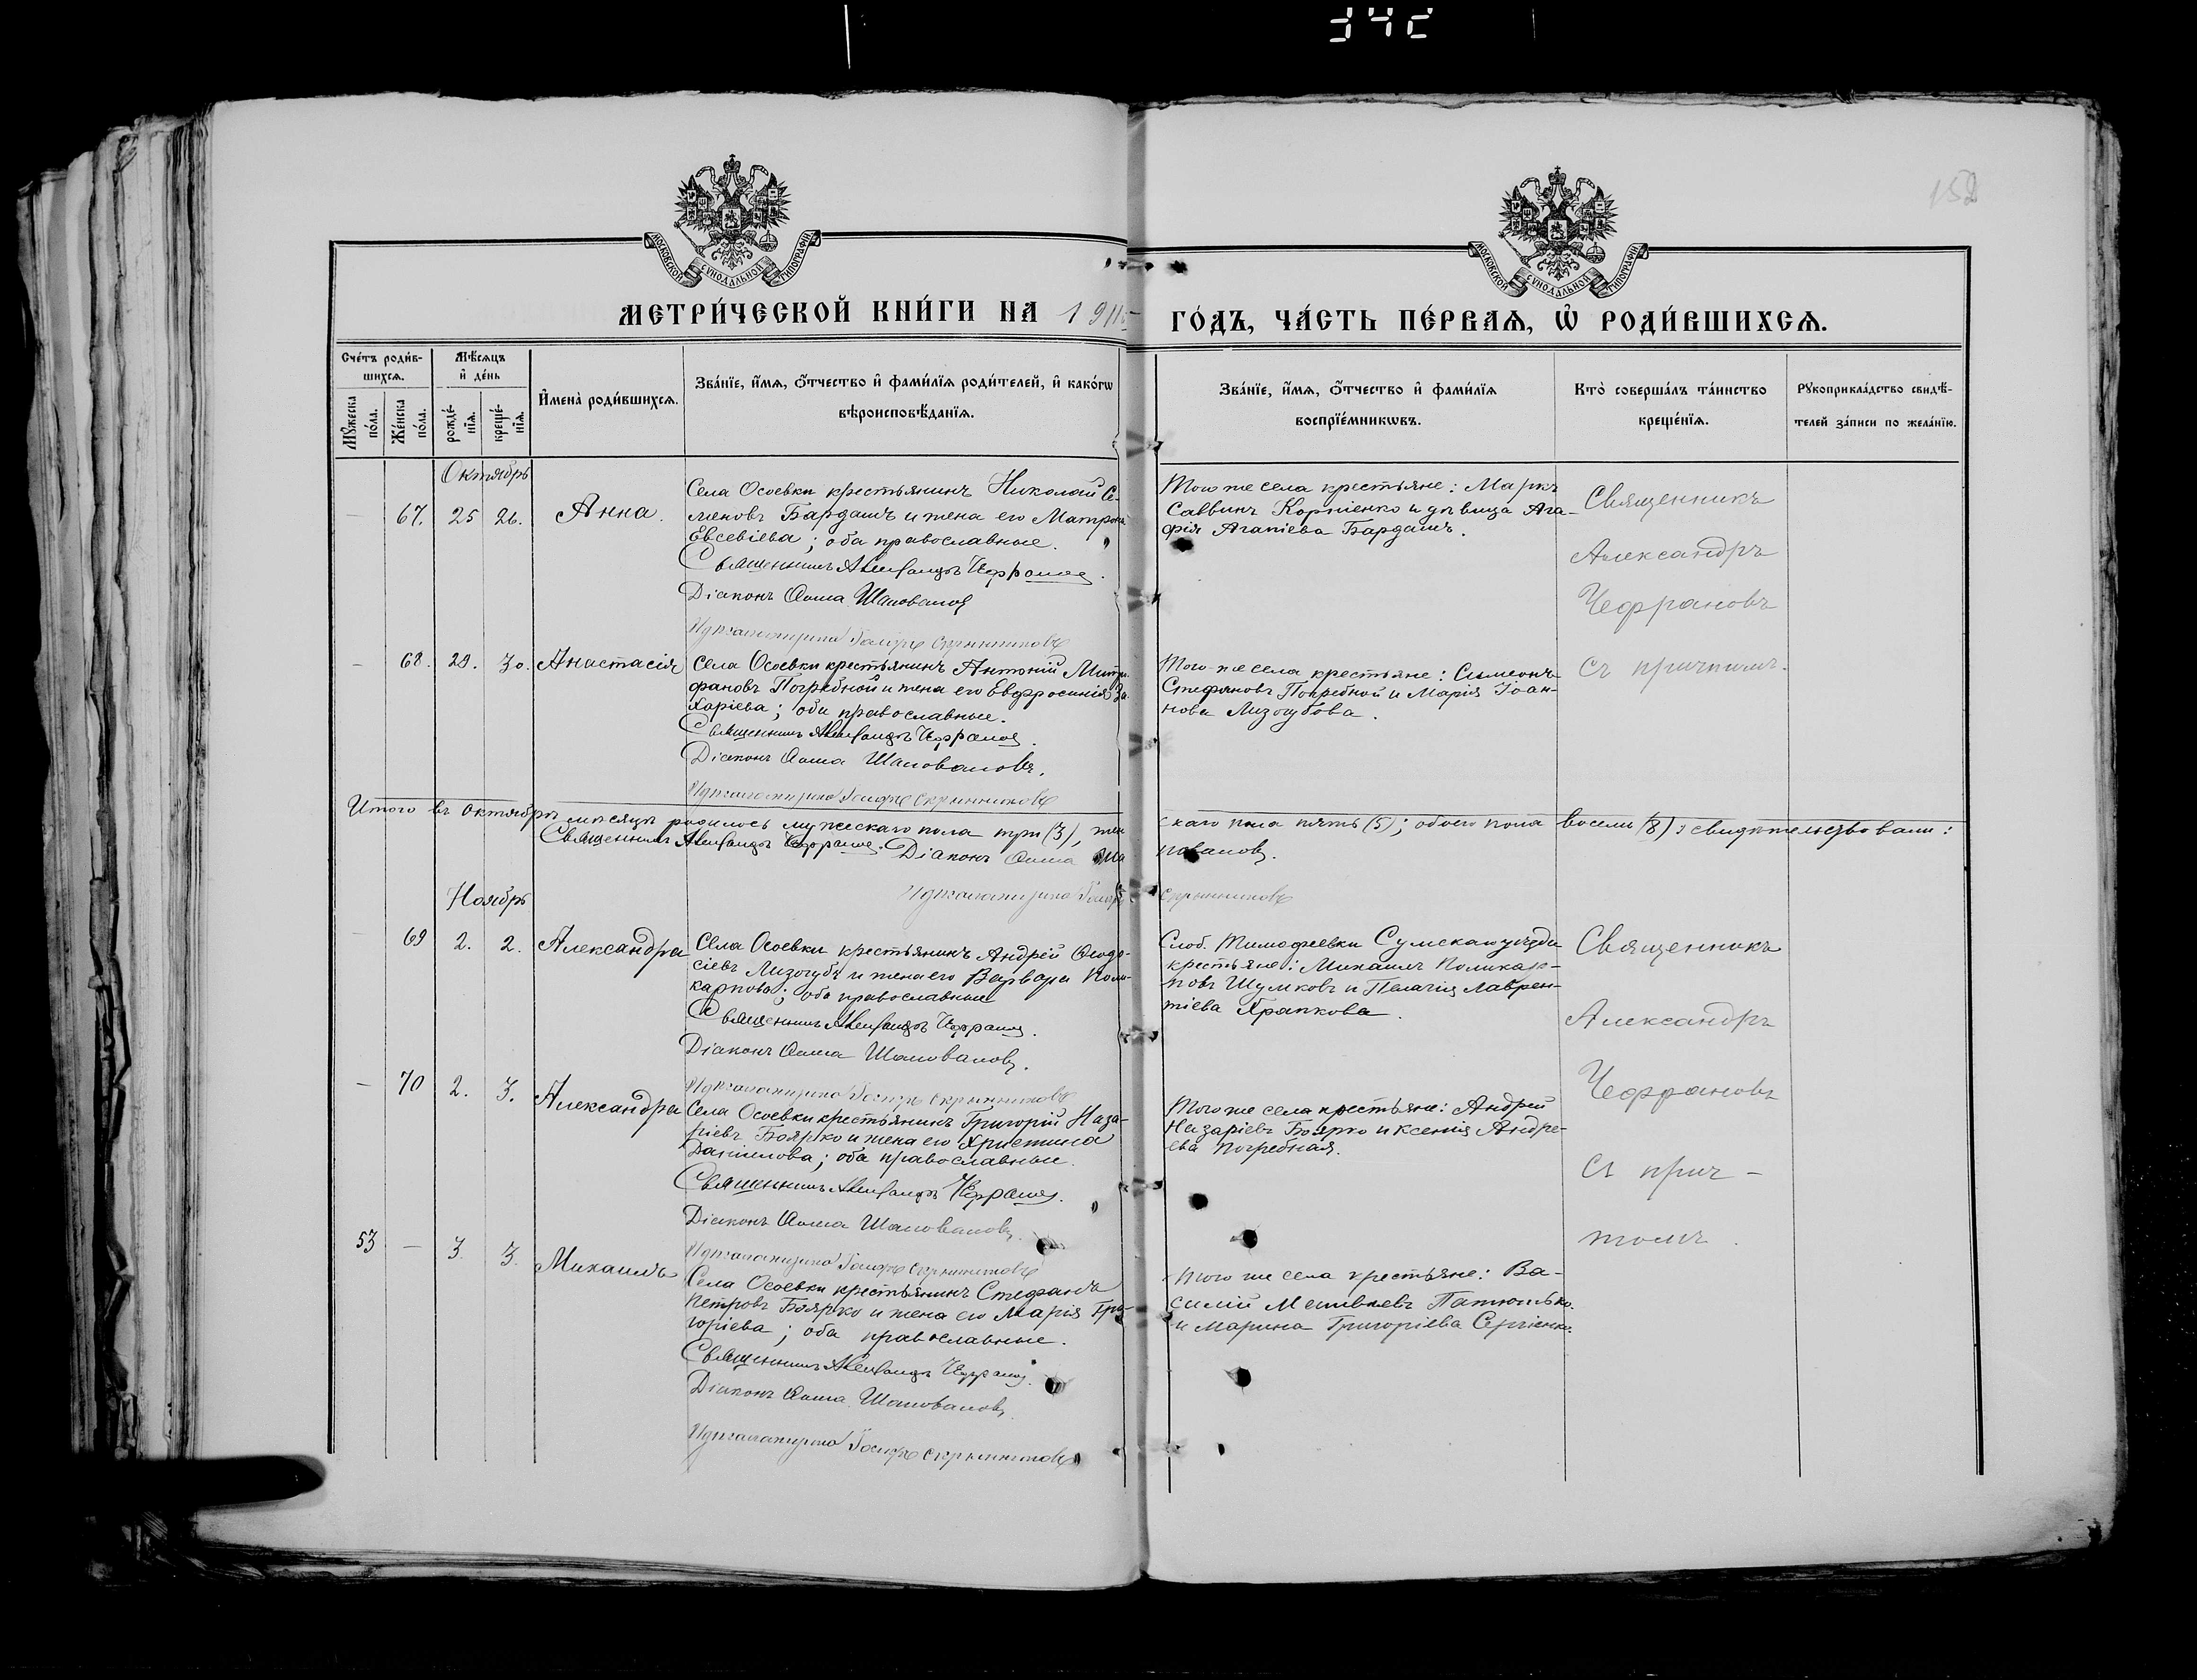 342
152
МОСКОВСКОЙ СѴНОДАЛЬНОЙ ТИПОГРАФІИ
МОСКОВСКОЙ СѴНОДАЛЬНОЙ ТИПОГРАФІИ
МЕТРИ́ЧЕСКОЙ КНИ́ГИ НА 1911 ГО́ДЪ, ЧА́СТЬ ПЕ́РВАѦ, Ѡ҆ РОДИ́ВШИХСѦ.
Сче́тъ роди́в-
шихсѧ.
Мꙋ́жеска по́ла.
Же́нска по́ла.
Мѣ́сѧцъ и҆ де́нь
рожде́-нїѧ.
креще́-нїѧ.
И҆мена̀ роди́вшихсѧ.
Зва́нїе, и҆́мѧ, ѻ҆́тчество и҆ фами́лїѧ роди́телей, и҆ како́гѡ
вѣроисповѣ́данїѧ.
Зва́нїе, и҆́мѧ, ѻ҆́тчество и҆ фами́лїѧ
воспрїе́мникѡвъ.
Кто̀ соверша́лъ та́инство
креще́нїѧ.
Рꙋкоприкла́дство свидѣ́-
телей за́писи по жела́нїю.
Октябрь
— 67. 25 26. Анна.
Села Осоевки крестьянинъ Николай Се-
меновъ Бардашъ и жена его Матрона
Евсевіева; оба православные.
Священникъ Александръ Чефрановъ.
Діаконъ Ѳома Шаповаловъ
Скрынниковъ
Того же села крестьяне: Маркъ
Саввинъ Корніенко и дѣвица Ага-
фія Агапіева Бардашъ.
Священникъ
Александръ
Чефрановъ
съ причтомъ.
— 68. 29. 30. Анастасія
Села Осоевки крестьянинъ Антоній Митро-
фановъ Погребной и жена его Евфросинія За-
харіева; оба православные.
Священникъ Александръ Чефрановъ.
Діаконъ Ѳома Шаповаловъ.
Скрынниковъ
Того же села крестьяне: Симеонъ
Стефановъ Погребной и Марія Іоан-
нова Лизогубова.
Итого въ октябрѣ мѣсяцѣ родилось мужескаго пола три (3), жен скаго пола пять (5); обоего пола восемь (8); свидѣтельствовали:
Священникъ Александръ Чефрановъ. Діаконъ Ѳома Шаповаловъ.
Скрынниковъ
Ноябрь
— 69 2. 2. Александра
Села Осоевки крестьянинъ Андрей Ѳеодо-
сіевъ Лизогубъ и жена его Варвара Поли-
карпова; оба православные
Священникъ Александръ Чефрановъ.
Діаконъ Ѳома Шаповаловъ.
Скрынниковъ
Слоб. Тимофеевки Сумскаго уѣзда
крестьяне: Михаилъ Поликар-
повъ Шумковъ и Пелагія Лаврен-
тіева Храпкова.
Священникъ
Александръ
Чефрановъ
съ прич-
томъ.
— 70 2. 3. Александра
Села Осоевки крестьянинъ Григорій Наза-
ріевъ Боярко и жена его Христина
Даниилова; оба православные.
Священникъ Александръ Чефрановъ.
Діаконъ Ѳома Шаповаловъ.
Скрынниковъ
Того же села крестьяне: Андрей
Назаріевъ Боярко и Ксенія Андре-
ева Погребная.
53 — 3 3. Михаилъ
Села Осоевки крестьянинъ Стефанъ
Петровъ Боярко и жена его Марія Гри-
горіева; оба православные.
Священникъ Александръ Чефрановъ.
Діаконъ Ѳома Шаповаловъ.
Скрынниковъ
Того же села крестьяне: Ва-
силій
и Марина Григоріева Сергіенко.